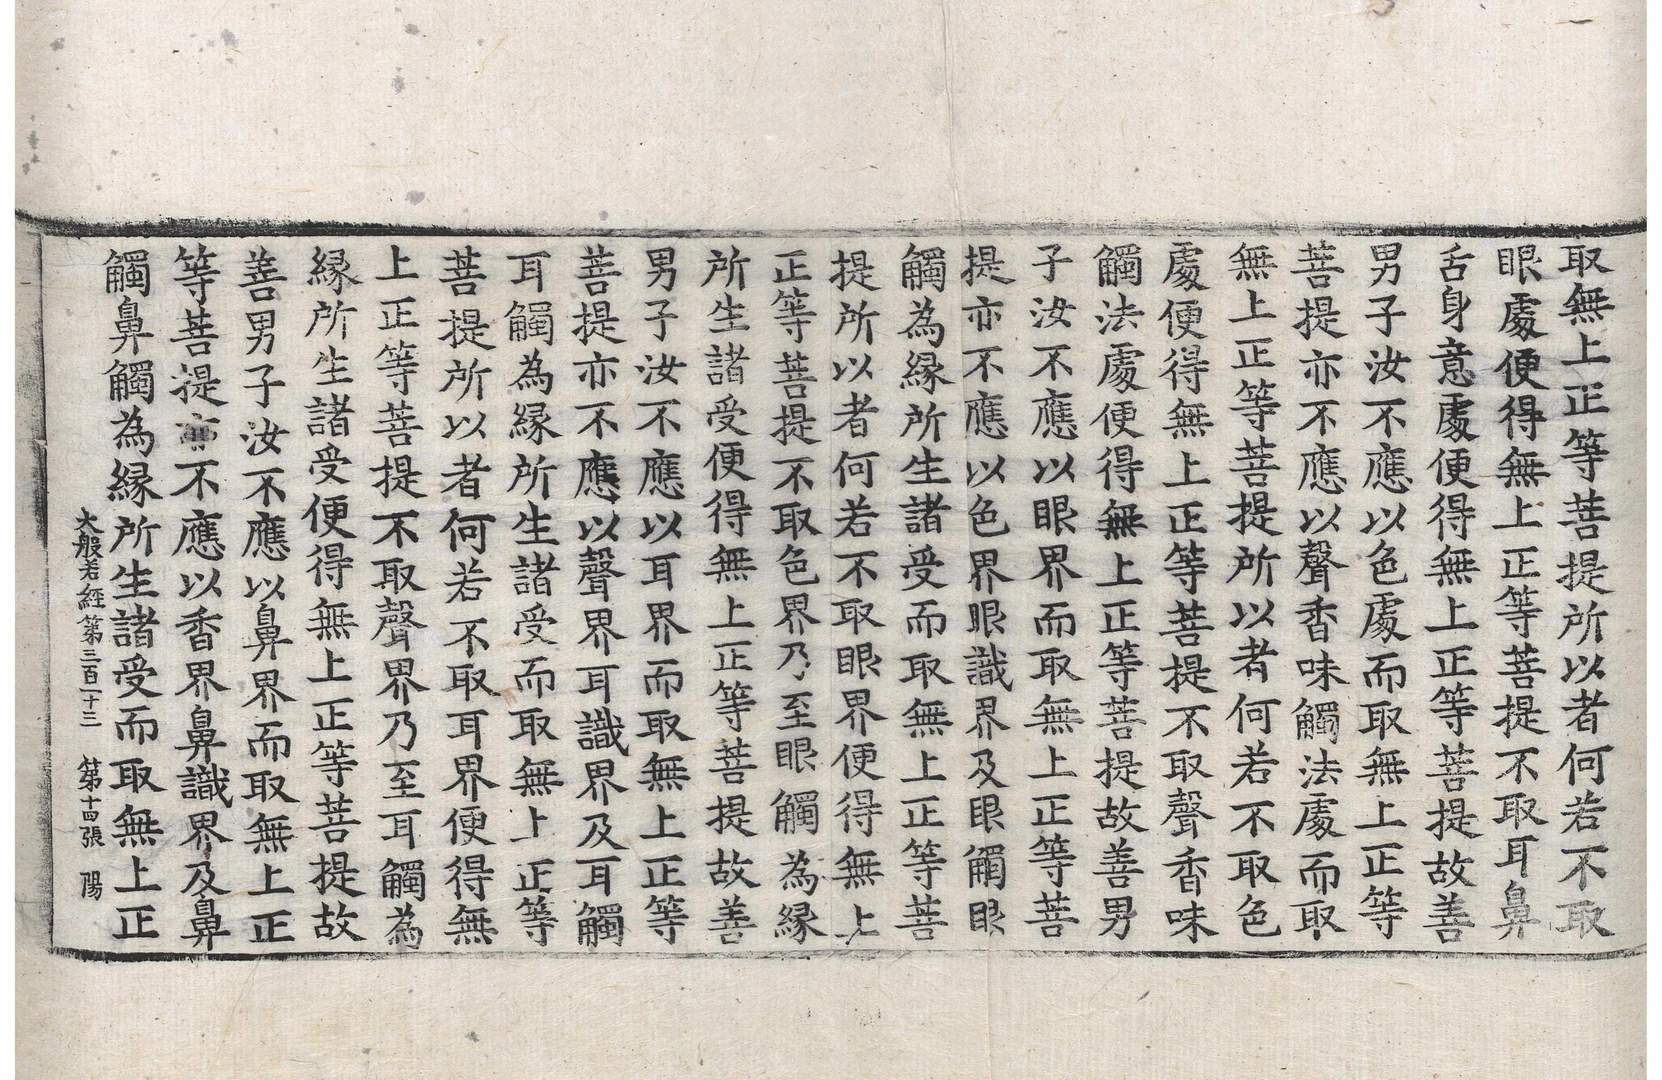 取無上正等菩提所以者何若不取
眼處便得無上正等菩提不取耳鼻
舌身意處便得無上正等菩提故善
男子汝不應以色處而取無上正等
菩提亦不應以聲香味觸法處而取
無上正等菩提所以者何若不取色
處便得無上正等菩提不取聲香味
觸法處便得無上正等菩提故善男
子汝不應以眼界而取無上正等菩
提亦不應以色界眼識界及眼觸眼
觸為緣所生諸受而取無上正等菩
提所以者何若不取眼界便得無上
正等菩提不取色界乃至眼觸為緣
所生諸受便得無上正等菩提故善
男子汝不應以耳界而取無上正等
菩提亦不應以聲界耳識界及耳觸
耳觸為緣所生諸受而取無上正等
菩提所以者何若不取耳界便得無
上正等菩提不取聲界乃至耳觸為
緣所生諸受便得無上正等菩提故
善男子汝不應以鼻界而取無上正
等菩提亦不應以香界鼻識界及鼻
觸鼻觸為緣所生諸受而取無上正
大般若經第三百一十三 第十四張 陽